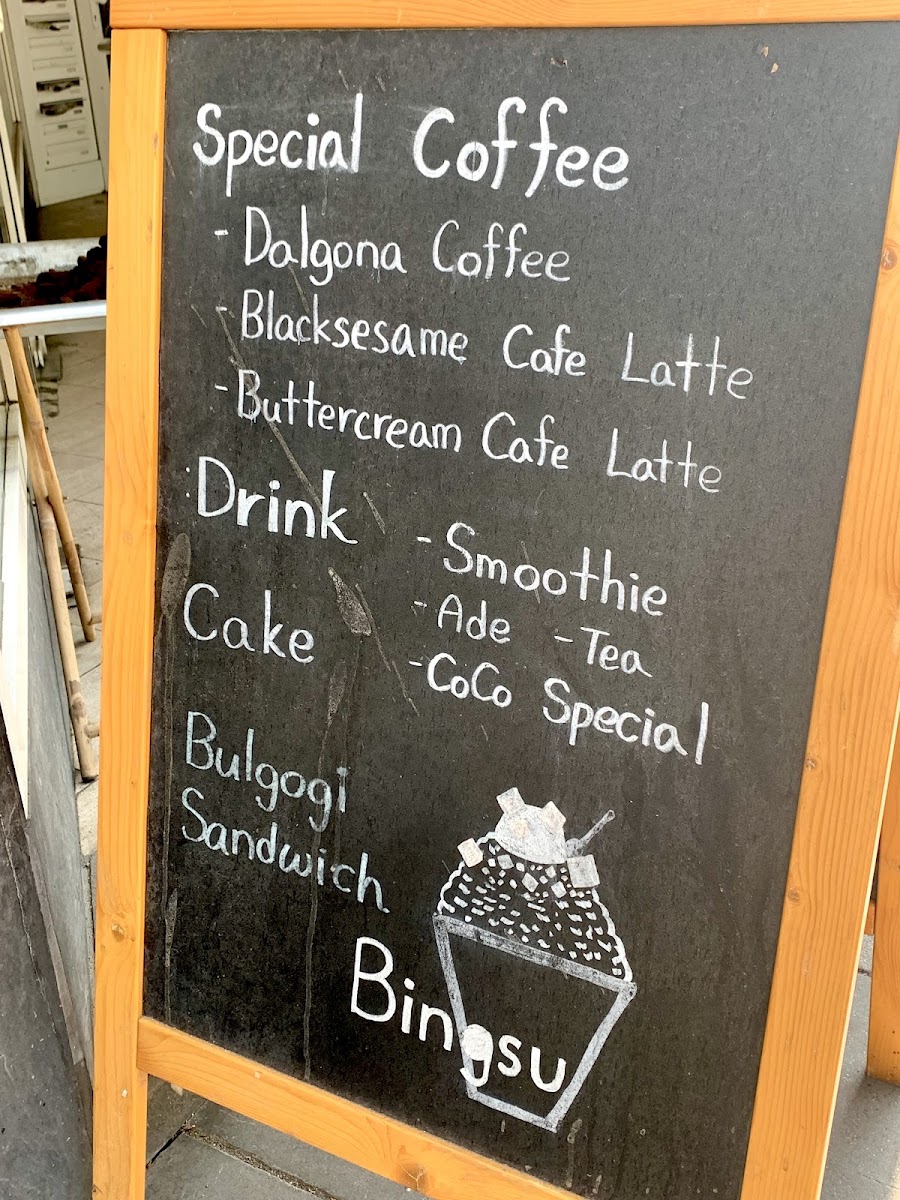 Special Coffee
- Dalgona Coffee
- Blacksesame Cafe Latte
- Buttercream Cafe Latte
Drink
- Smoothie
- Ade - Tea
- CoCo Special
Cake
Bulgogi
Sandwich
Bingsu